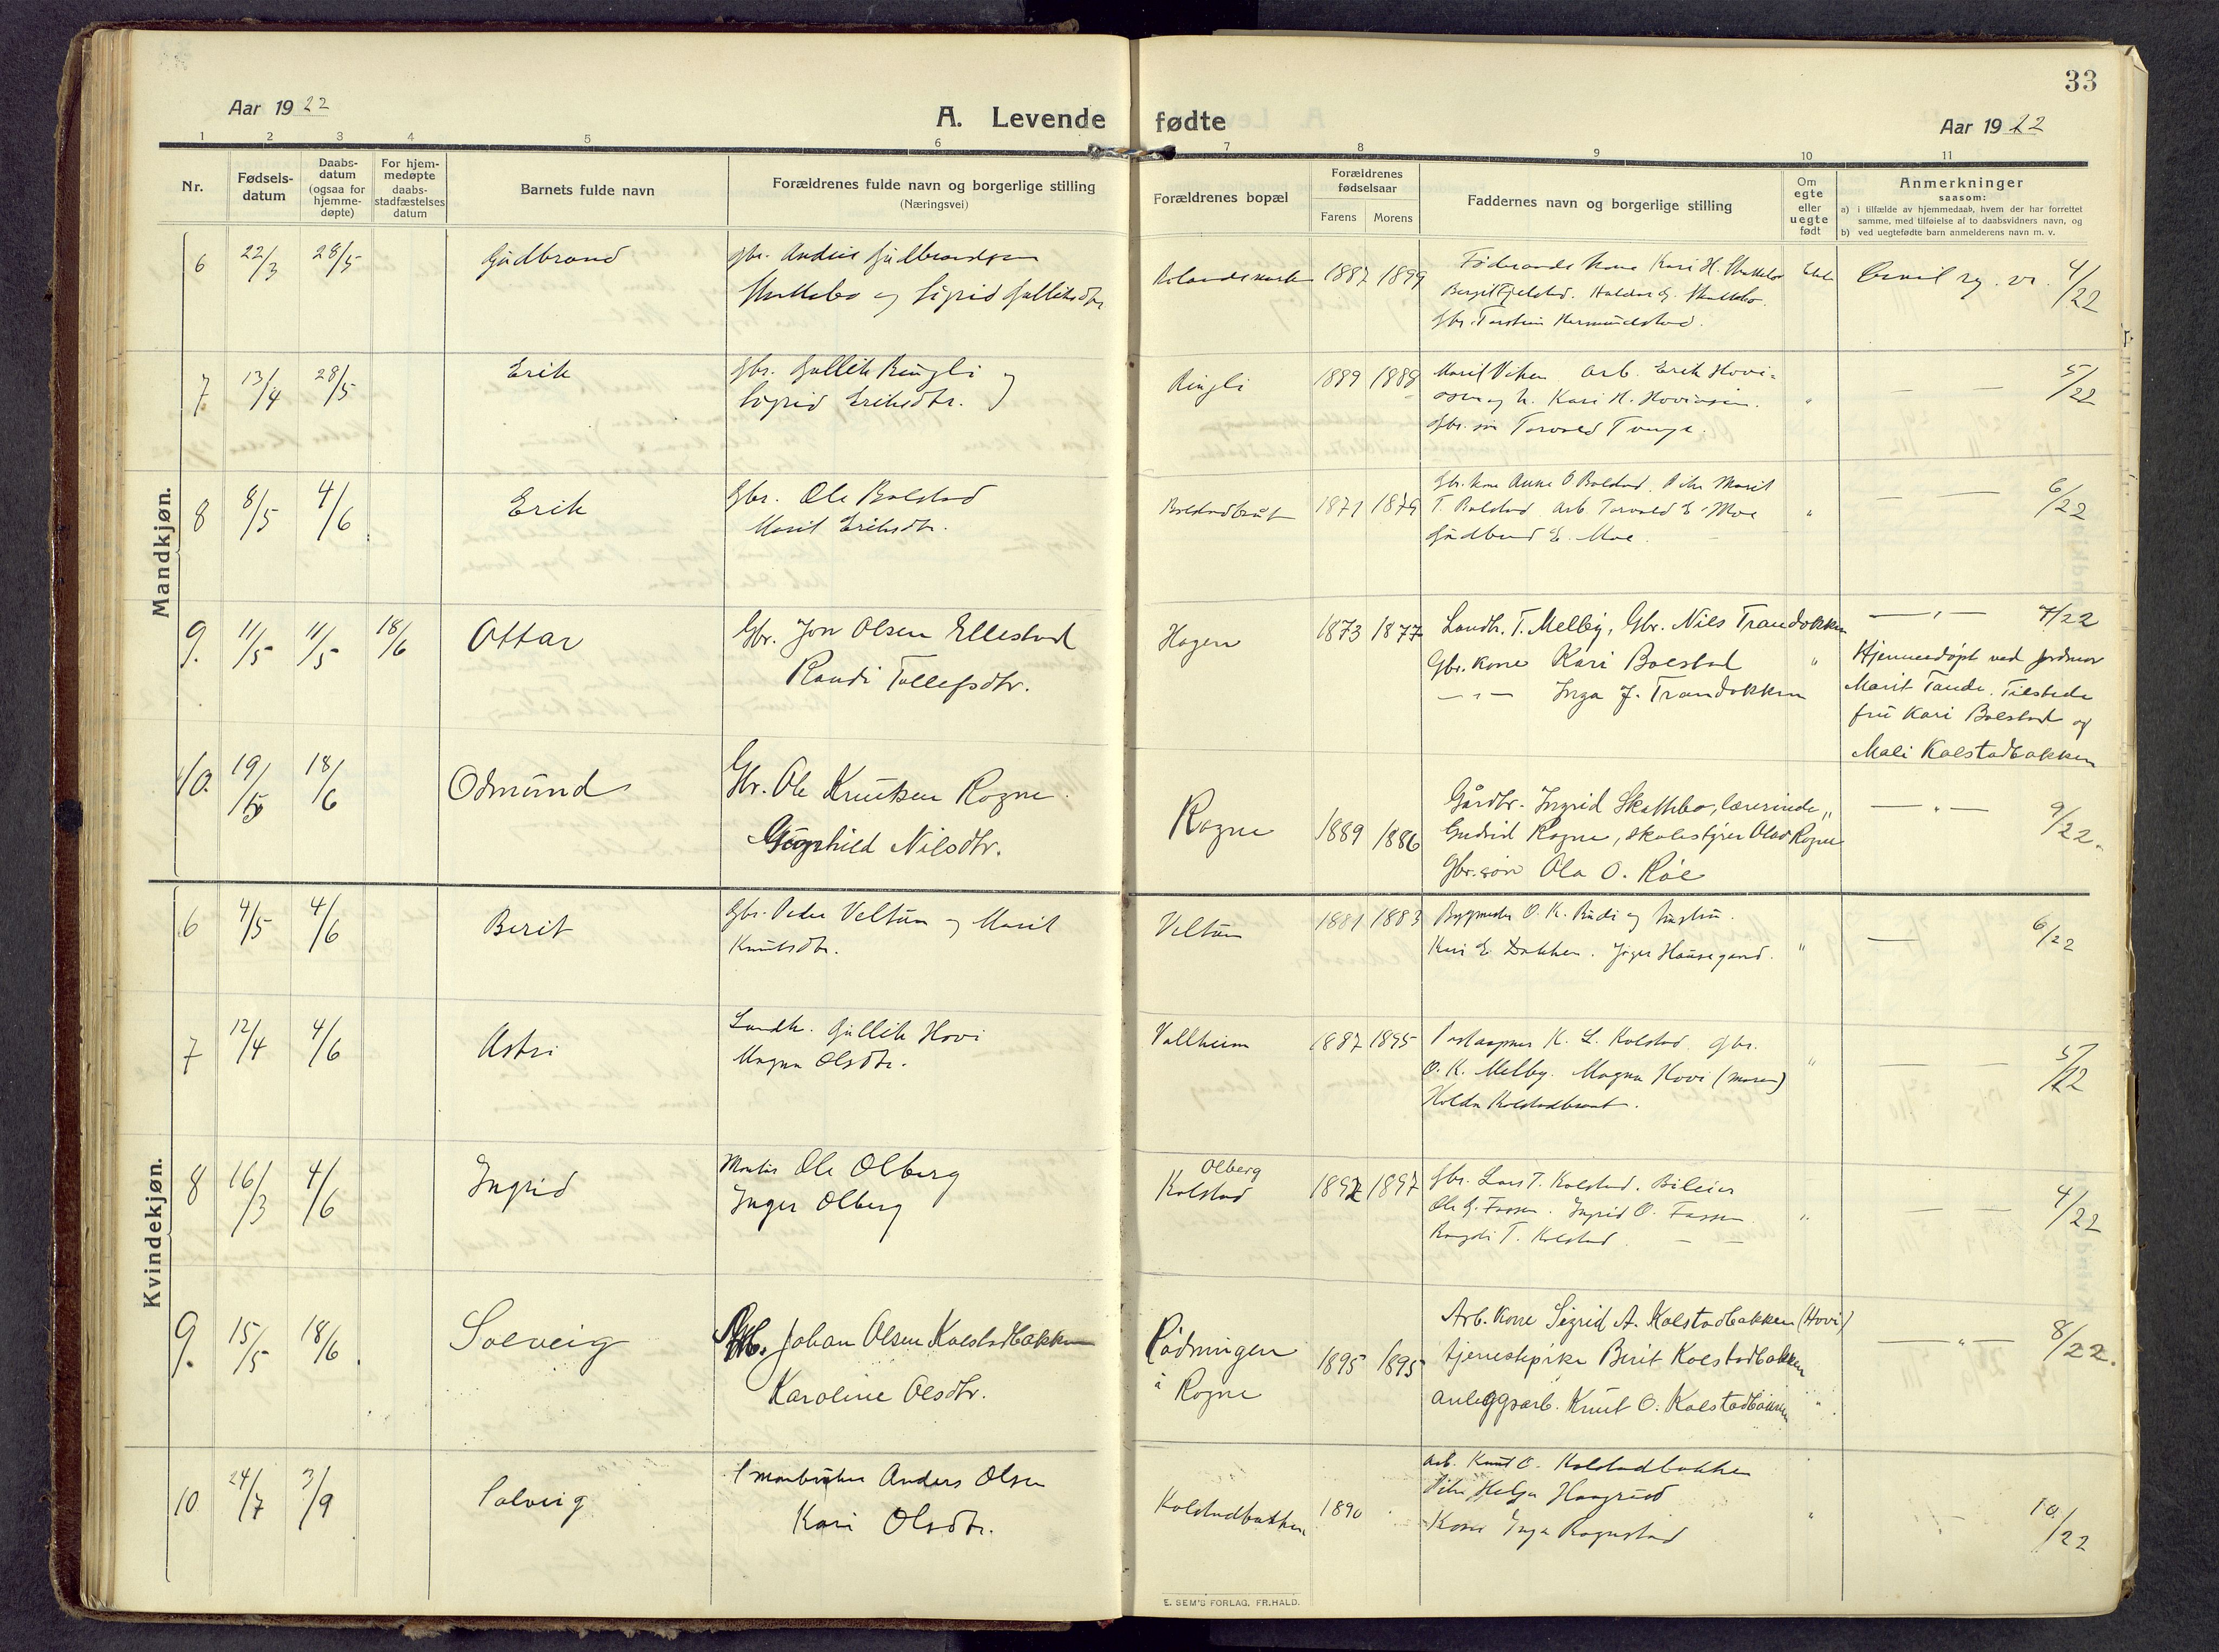 33
Aar 1922
A. Levende fødte
Aar 1922
1 2 3 4 5 6 7 8 9 10 11
Nr.
Fødsels-
datum
Daabs-
datum
(ogsaa for
hjemme-
døpte)
For hjem-
medøpte
daabs-
stadfæstelses
datum
Barnets fulde navn
Forældrenes fulde navn og borgerlige stilling
(Næringsvei)
Forældrenes bopæl
Forældrenes
fødselsaar
Farens Morens
Faddernes navn og borgerlige stilling
Om
egte
eller
uegte
født
Anmerkninger
saasom:
a) i tilfælde av hjemmedaab, hvem der har forrettet
samme, med tilføielse af to daabsvidners navn, og
b) ved uegtefødte barn anmelderens navn m. v.
Mandkjøn.
6 22/3 28/5 Gudbrand
Gbr. Andris Gudbrandsen
og Sigrid Gulliksdtr
1887 1899
Kari H.
Gbr. Torstein Hermundstad.
4/22
7 13/4 28/5 Erik
Gbr. Gullik Ringli og
Sigrid Eriksdtr.
Ringli 1889 1888
Marit Viken Arb. Erik Hovi-
og h. Kari H.
5/22
8 8/5 4/6 Erik
Gbr. Ole Bolstad
Marit Eriksdtr.
1871 1879
Gbr. kone Anne O Bolstad. Marit
T. Bolstad Arb Torvald E. Moe
E. Moe.
6/22
9. 11/5 11/5 18/6 Ottar
Gbr. Jon Olsen Ellestad
Randi Tollefsdtr.
Hagen 1873 1877
Landh. T. Melby, Gbr. Nils Trandokken
Gbr. kone Kari Bolstad "
— " — Inga J. Trandokken
— " — 7/22
Hjemmedøpt ved jordmor
Marit Tande. Tilstede
fru Kari Bolstad og
Mali Kolstadbakken
10. 19/5 18/6 Odmund
Gbr. Ole Knutsen Rogne
Nilsdtr.
Rogne 1889 1886
Gårdbr. Ingrid Skattebo, lærerinde
Gudrid Rogne, skolestyrer Olav Rogne
Gbr. søn Ola O. Röe
"
— " — 9/22.
Kvindekjøn.
6 4/5 4/6 Berit
Gbr. Peder Veltun og Marit
Knutsdtr.
Veltun 1881 1883
O. K. Rudi og hustru.
Kari E. Dokken.
"
— 6/22
7 12/4 4/6 Astri
Landh. Gullik Hovi
Magna Olsdtr.
Vallheim 1887 1895
K. L. Kolstad, Gbr.
O. K. Melby. Magna Hovi (moren)
"
— — 5/22
8 16/3 4/6 Ingrid
Montør Ole Olberg
Inger Olberg
Olberg
Kolstad 1892 1897
Gbr. Lars T. Kolstad. Bileier
Ole G. Fossen. Ingrid O. Fossen
T. Kolstad. — —
"
— — 4/22
9. 15/5 18/6. Solveig
Johan Olsen Kolstadbakken
Karoline Olsdtr.
Rödningen
i Rogne 1895 1895
Arb. kone Sigrid A. Kolstadbakken (Hovi)
tjenestepike Berit Kolstadbakken
anleggsarb. Knut O. Kolstadbakken "
— " — 8/22.
10 24/7 3/9 Solveig
Anders Olsen
Kari Olsdtr.
Kolstadbakken 1890
Arb. Knut O. Kolstadbakken
Pike Helga Haugrud
Kone Inga Rognstad
"
10/22
E. SEM'S FORLAG, FR.HALD.